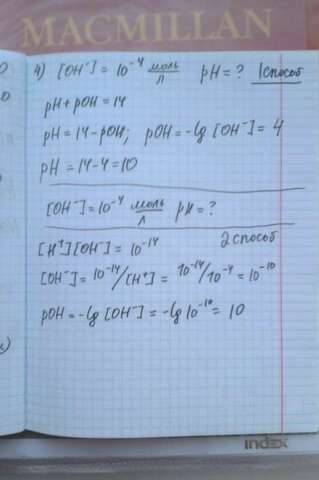 MACMILLAN
4) [OH⁻] = 10⁻⁴ моль/л pH = ? 1 способ
pH + pOH = 14
pH = 14 - pOH; pOH = -lg [OH⁻] = 4
pH = 14 - 4 = 10
[OH⁻] = 10⁻⁴ моль/л pH = ?
2 способ
[H⁺][OH⁻] = 10⁻¹⁴
[OH⁻] = 10⁻¹⁴/[H⁺] = 10⁻¹⁴/10⁻⁴ = 10⁻¹⁰
pOH = -lg [OH⁻] = -lg 10⁻¹⁰ = 10
index